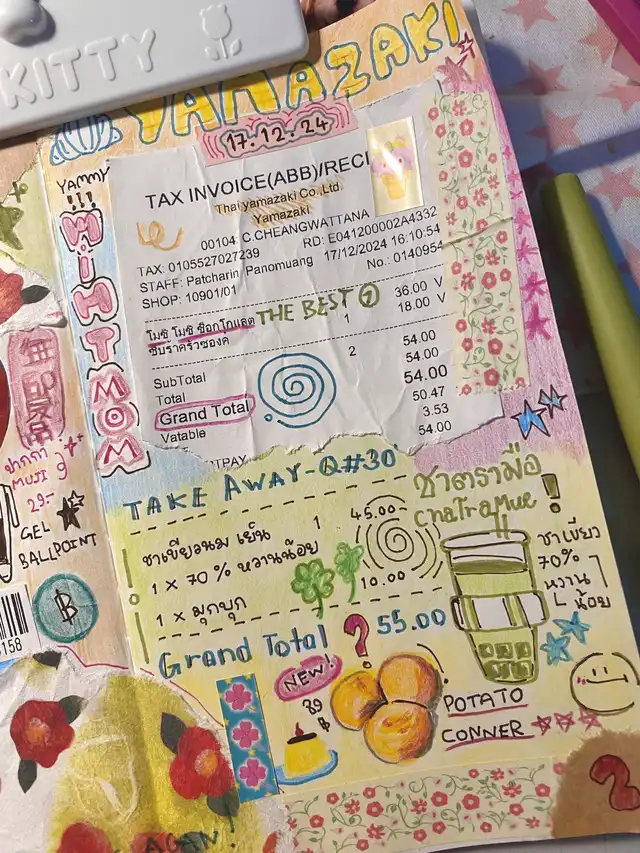 KITTY
YAMAZAKI
17.12.24
YAMMY
!!!
WITH MOM
TAX INVOICE(ABB)/RECI
Thai yamazaki Co.,Ltd
Yamazaki
00104 C.CHEANGWATTANA
TAX: 0105527027239 RD: E041200002A4332
STAFF: Patcharin Panomuang 17/12/2024 16:10:54
SHOP: 10901/01 No.: 0140954
โมชิ โมชิ ช็อกโกแลต THE BEST 1 36.00 V
1 18.00 V
2 54.00
SubTotal 54.00
Total 54.00
Grand Total 50.47
Vatable 3.53
54.00
TRAY
無印良品
ปากกา
MUJI
29.-
GEL
BALLPOINT
฿
3158
TAKE AWAY-Q#30
ชาตรามือ
ChaTraMue!
ชาเขียวนม เย็น 1 45.00
1 x 70% หวานน้อย
1 x มุกบุก 10.00
Grand Total ? 55.00
ชาเขียว
70%
หวาน
น้อย
NEW!
39
฿
POTATO
CONNER
AGAIN!
2